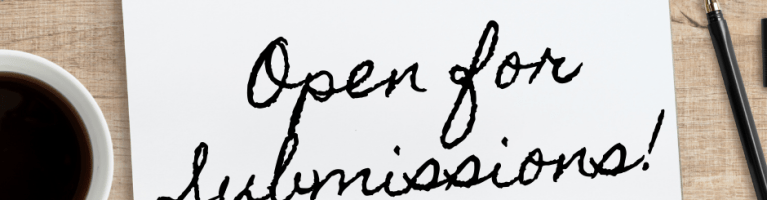 Open for
Submissions!